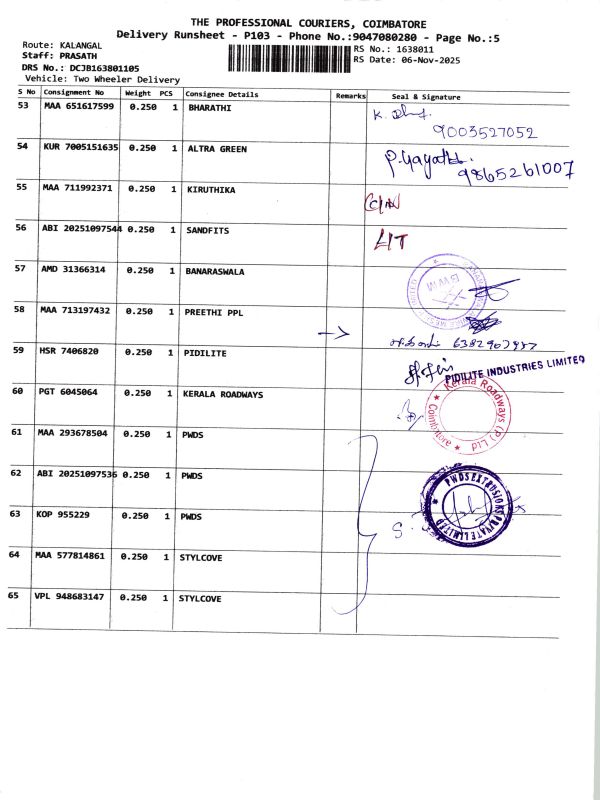 THE PROFESSIONAL COURIERS, COIMBATORE
Delivery Runsheet - P103 - Phone No.:9047080280 - Page No.:5
Route: KALANGAL
RS No.: 1638011
Staff: PRASATH
RS Date: 06-Nov-2025
DRS No.: DCJB163801105
Vehicle: Two Wheeler Delivery
S No Consignment No Weight PCS Consignee Details Remarks Seal & Signature
53 MAA 651617599 0.250 1 BHARATHI
9003527052
54 KUR 7005151635 0.250 1 ALTRA GREEN P. Gayathri
9865261007
55 MAA 711992371 0.250 1 KIRUTHIKA
56 ABI 20251097544 0.250 1 SANDFITS LIT
57 AMD 31366314 0.250 1 BANARASWALA
58 MAA 713197432 0.250 1 PREETHI PPL
59 HSR 7406820 0.250 1 PIDILITE PIDILITE INDUSTRIES LIMITED
60 PGT 6045064 0.250 1 KERALA ROADWAYS Kerala Roadways (P) Ltd Coimbatore
61 MAA 293678504 0.250 1 PWDS
62 ABI 20251097536 0.250 1 PWDS PWDS EXTRUSIONS PRIVATE LIMITED
63 KOP 955229 0.250 1 PWDS
64 MAA 577814861 0.250 1 STYLCOVE
65 VPL 948683147 0.250 1 STYLCOVE